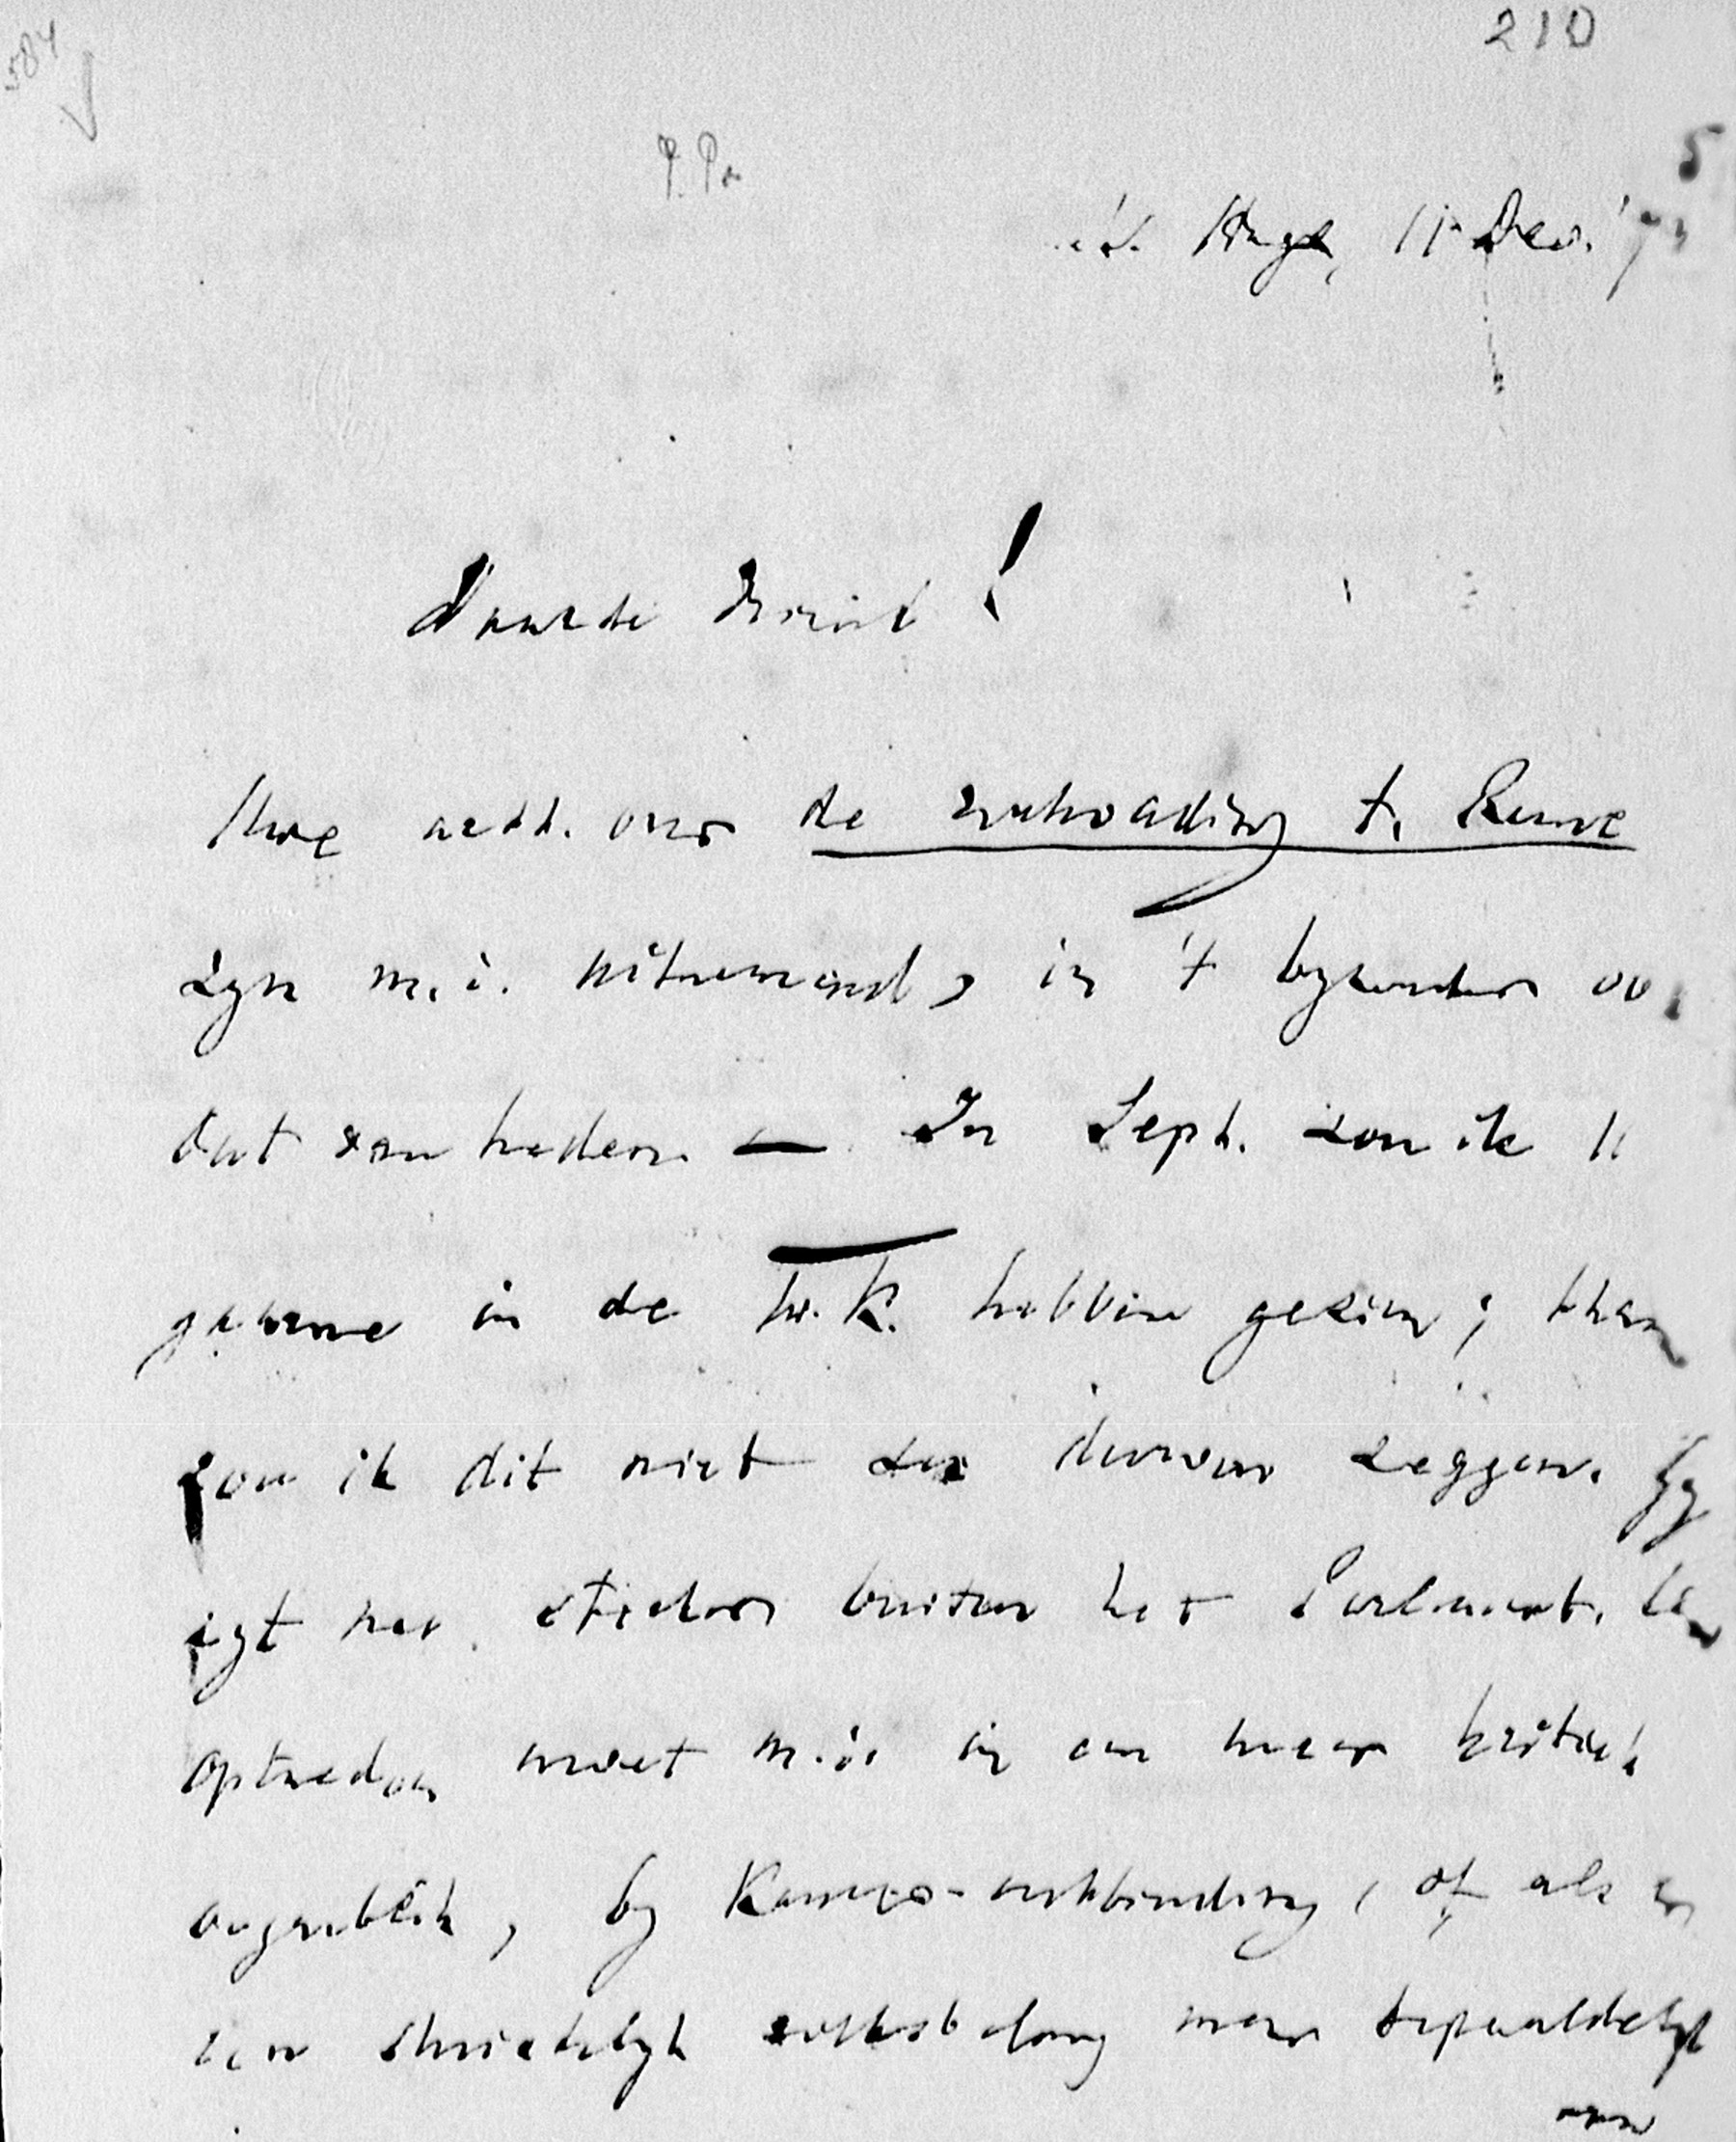 210
584
's Hage, 11 Dec. '73
Waarde Vriend!
Uwe artt. over de verhouding t. Rome
zyn m.i. uitnemend, in 't byzonder oo
dat van heden. — In Sept. zou ik U
gaarne in de Tw.K. hebben gezien; than
zou ik dit niet zoo durven zeggen. Gy
zyt nu sterker buiten het Parlement. Uw
optreden moet m.i. in een meer kritiek
oogenblik, by Kamer-ontbinding, of als er
een christelyk volksbelang meer bepaaldelyk